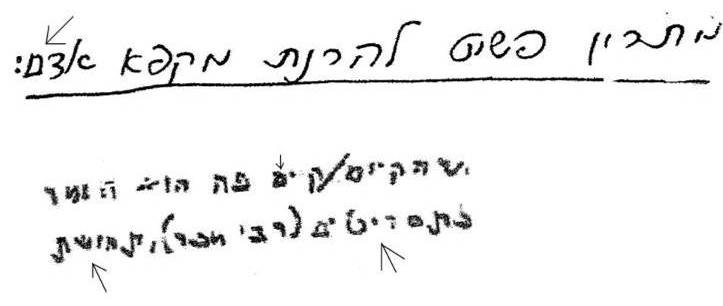 מתכון פשוט להכנת מקפא אדם:
שהקיים/קיים פה הוא
בתסריטים (רבי מכר), תחושת